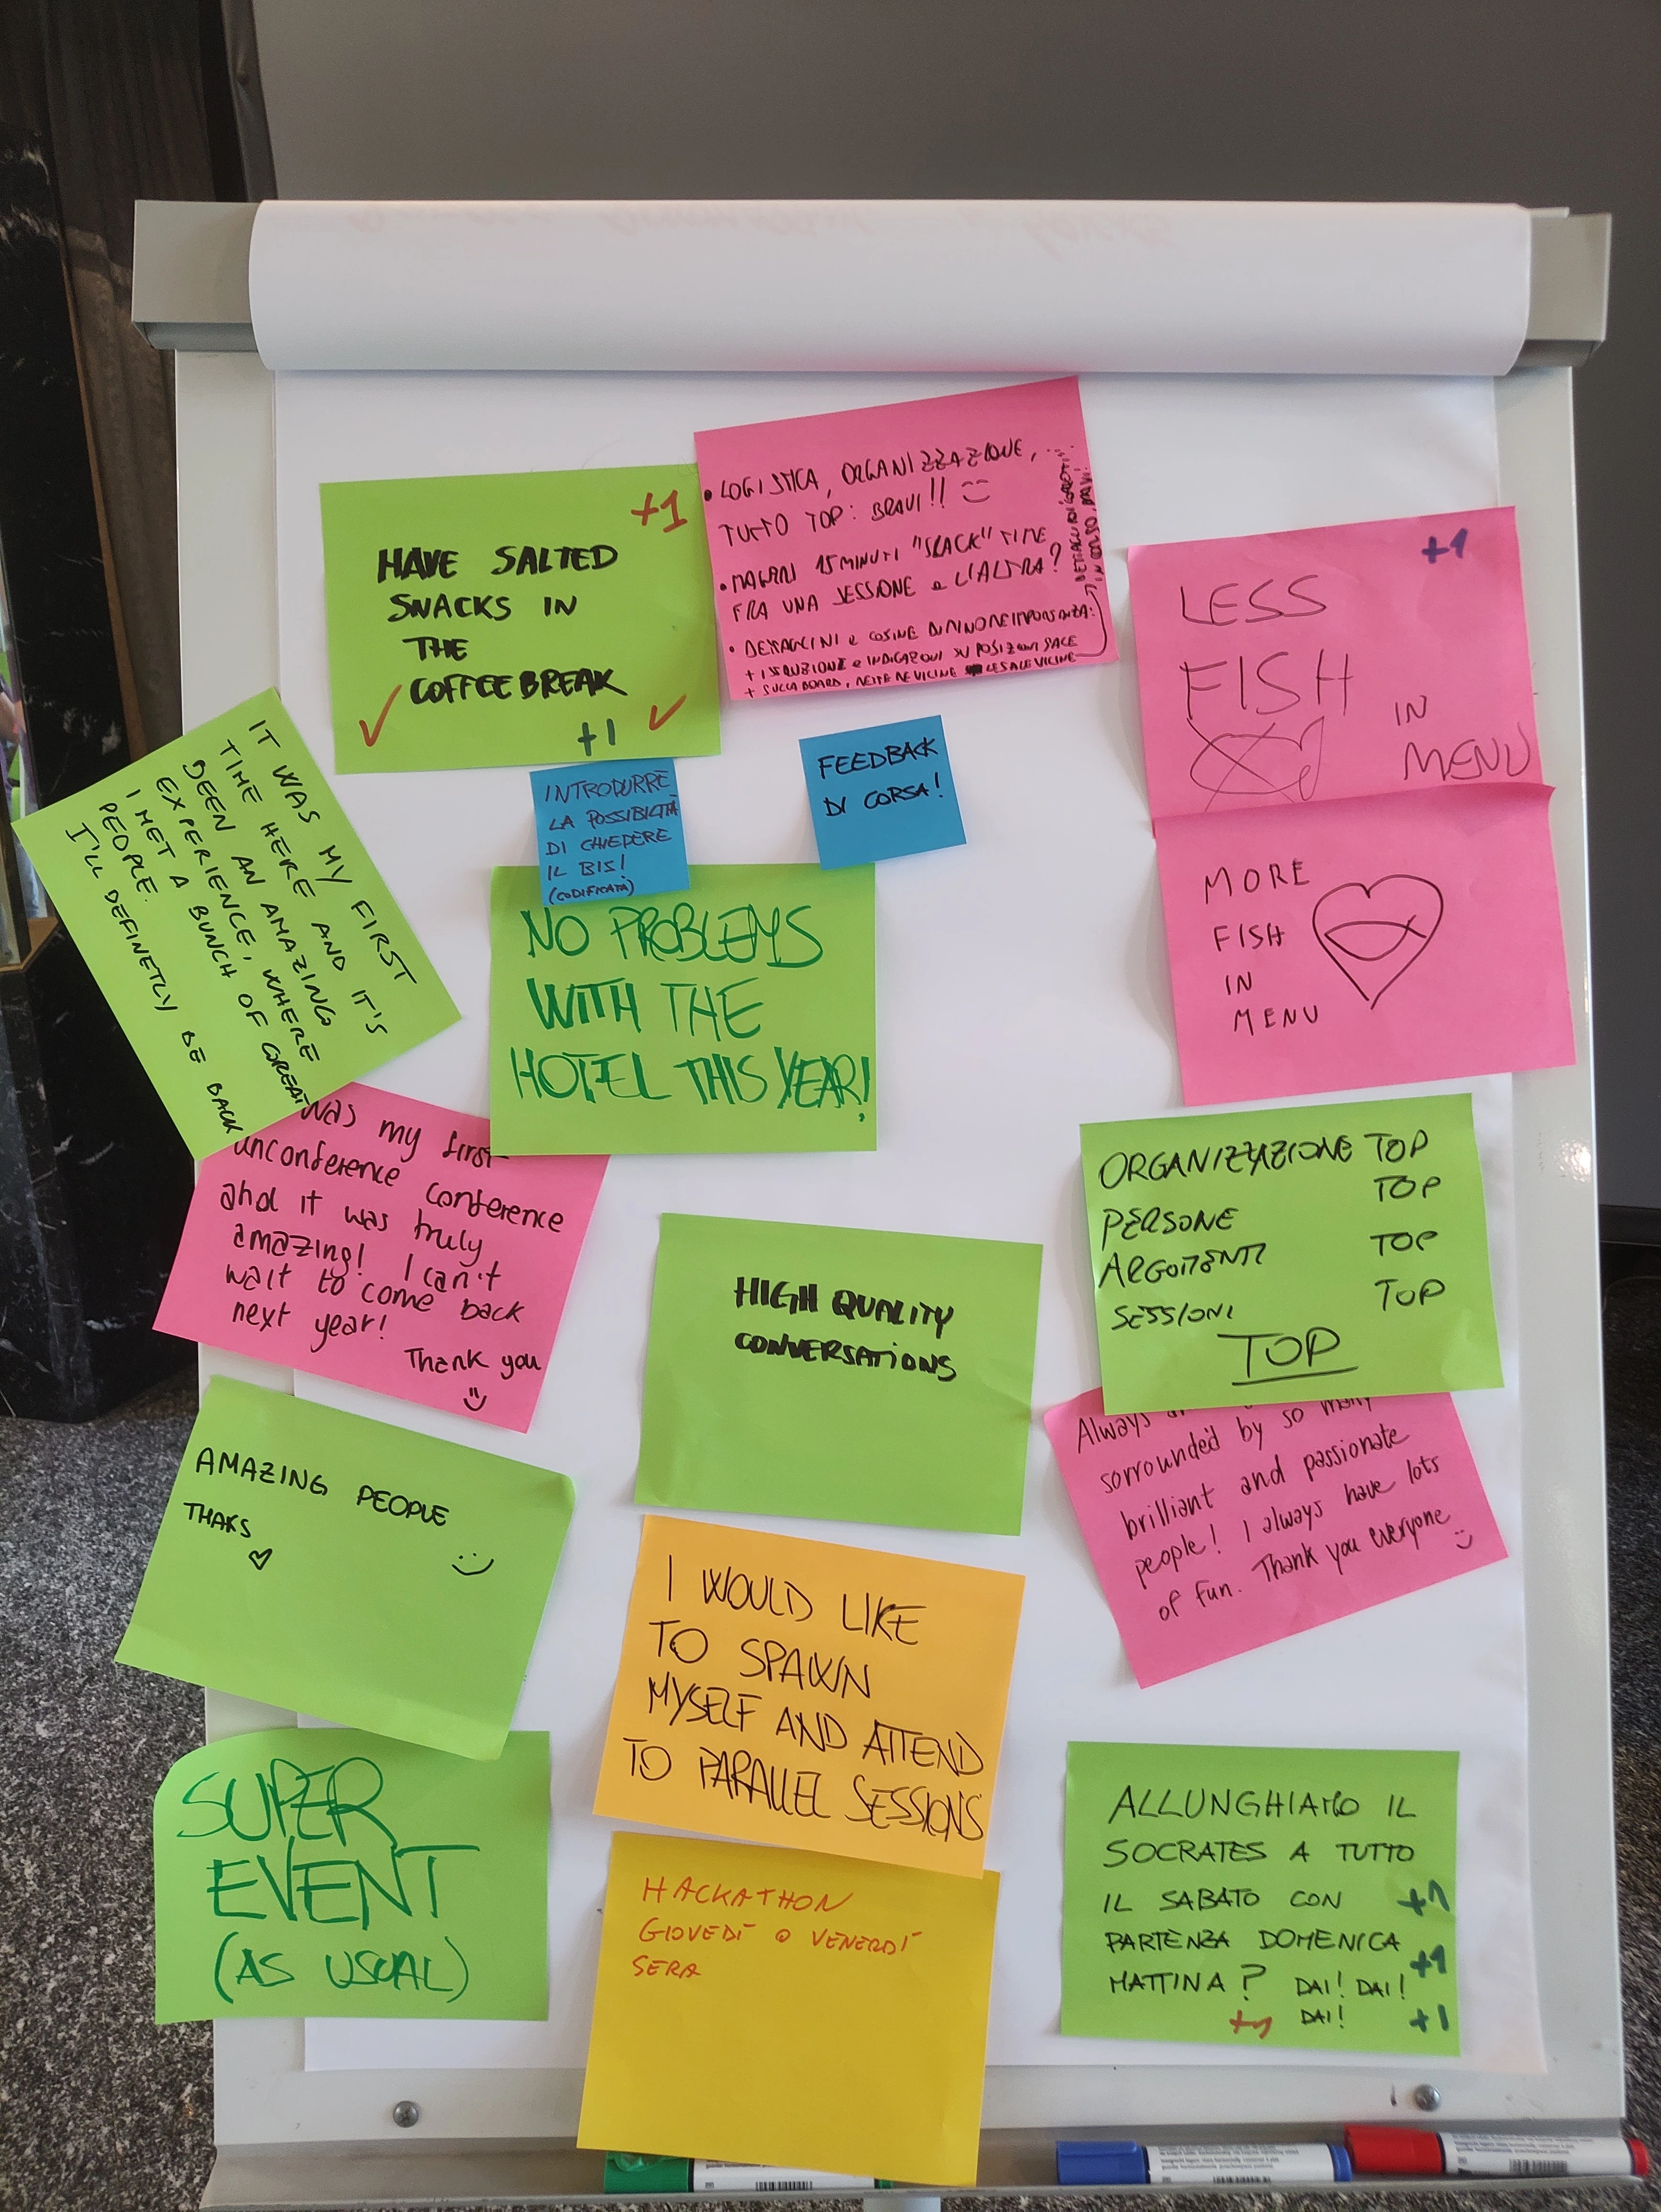 +1
HAVE SALTED
SNACKS IN
THE
COFFEE BREAK
+1
• LOGISTICA, ORGANIZZAZIONE, ...
TUTTO TOP: BRAVI!!
• MAGARI 15 MINUTI "SLACK" TIME
FRA UNA SESSIONE e L'ALTRA?
• DETTAGLINI e COSINE DI MINORE IMPORTANZA:
+ ISTRUZIONI e INDICAZIONI SU POSIZIONI SALE
+ SULLA BOARD, METTERE VICINE LE SALE VICINE
+1
LESS
FISH
IN
MENU
MORE
FISH
IN
MENU
INTRODURRE
LA POSSIBILITÀ
DI CHIEDERE
IL BIS!
(CODIFICATA)
FEEDBACK
DI CORSA!
IT WAS MY FIRST
TIME HERE AND IT'S
BEEN AN AMAZING
EXPERIENCE, WHERE
I MET A BUNCH OF GREAT
PEOPLE.
I'LL DEFINETLY BE BACK
NO PROBLEMS
WITH THE
HOTEL THIS YEAR!
was my first
unconference conference
and it was truly
amazing! I can't
wait to come back
next year!
Thank you
ORGANIZZAZIONE TOP
TOP
PERSONE
ARGOMENTI TOP
SESSIONI TOP
TOP
HIGH QUALITY
CONVERSATIONS
Always
sorrounded by so many
brilliant and passionate
people! I always have lots
of fun. Thank you everyone
AMAZING PEOPLE
THAKS
I WOULD LIKE
TO SPAWN
MYSELF AND ATTEND
TO PARALLEL SESSIONS
SUPER
EVENT
(AS USUAL)
HACKATHON
GIOVEDÌ O VENERDÌ
SERA
ALLUNGHIAMO IL
SOCRATES A TUTTO
IL SABATO CON +1
PARTENZA DOMENICA
+1
MATTINA? DAI! DAI!
+1 DAI! +1